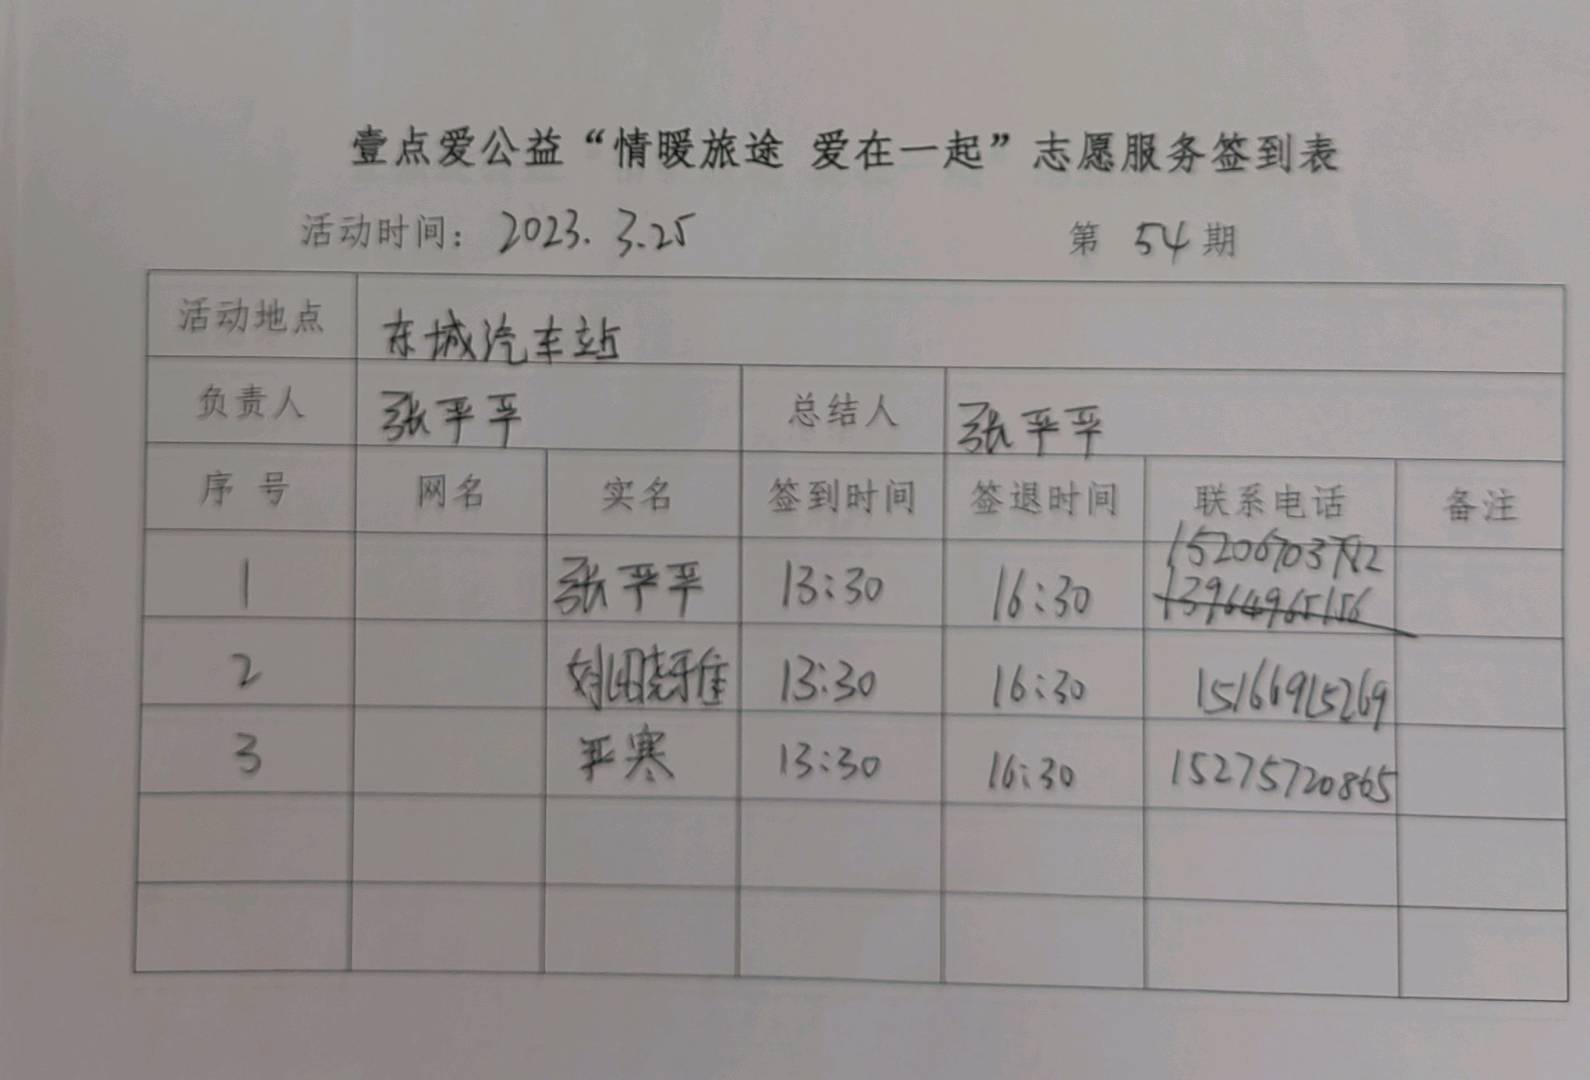 壹点爱公益“情暖旅途 爱在一起”志愿服务签到表
活动时间：2023.3.25 第54期
活动地点 东城汽车站
负责人 张平平 总结人 张平平
序号 网名 实名 签到时间 签退时间 联系电话 备注
15206703782
1 张平平 13:30 16:30 13964965156
2 姚晓雅 13:30 16:30 15166915269
3 严寒 13:30 16:30 15275720865